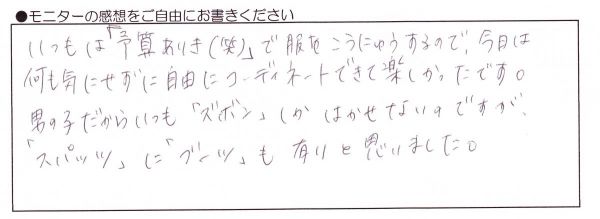 ●モニターの感想をご自由にお書きください
いつもは「予算ありき(笑)」で服をこうにゅうするので、今日は
何も気にせずに自由にコーディネートできて楽しかったです。
男の子だからいつも「ズボン」しかはかせてないのですが、
「スパッツ」に「ブーツ」も有りと思いました。